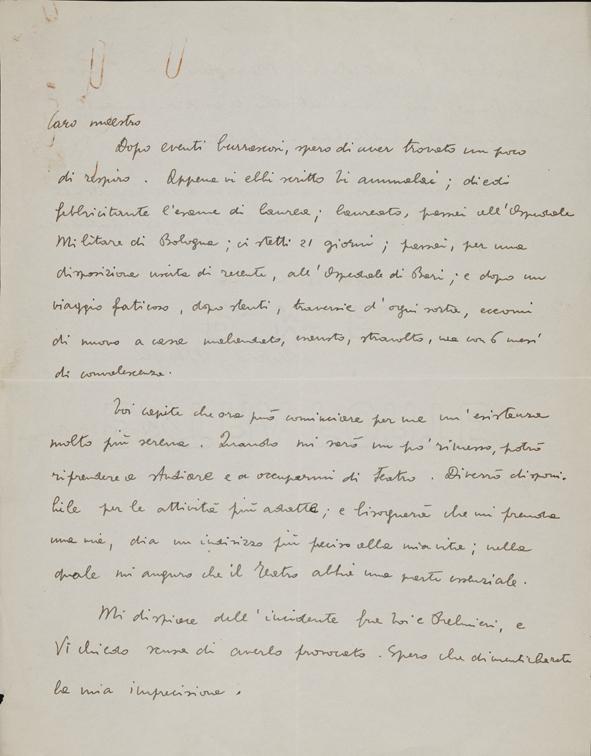 Caro maestro
Dopo eventi burrascosi, spero di aver trovato un poco
di respiro. Appena vi ebbi scritto mi ammalai; diedi
febbricitante l'esame di laurea; laureato, passai all'Ospedale
Militare di Bologna; ci stetti 21 giorni; passai, per una
disposizione uscita di recente, all'Ospedale di Bari; e dopo un
viaggio faticoso, dopo stenti, traversie d'ogni sorta, eccomi
di nuovo a casa malandato, esausto, stravolto, ma con 6 mesi
di convalescenza.
Voi capite che ora può cominciare per me un'esistenza
molto più serena. Quando mi sarò un po' rimesso, potrò
riprendere a studiare e a occuparmi di Teatro. Diverrò disponi-
bile per le attività più adatte; e bisognerà che mi prenda
una via, dia un indirizzo più preciso alla mia vita; nella
quale mi auguro che il Teatro abbia una parte essenziale.
Mi dispiace dell'incidente fra Voi e, e
Vi chiedo scusa di averlo provocato. Spero che dimenticherete
la mia imprecisione.